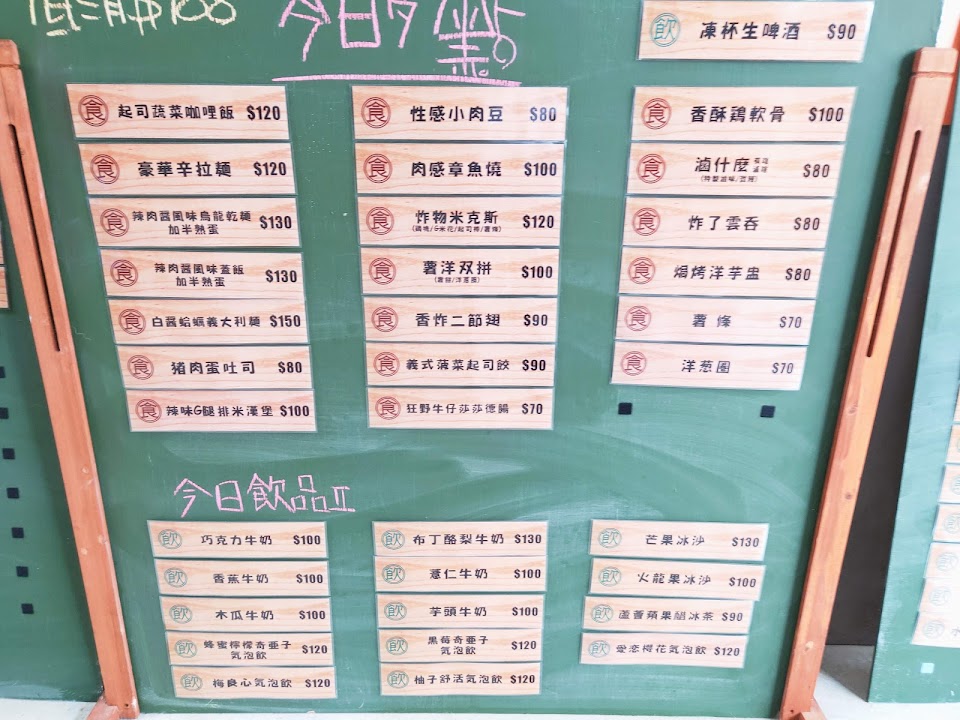 低消$100
今日夕點
飲 凍杯生啤酒 $90
食 起司蔬菜咖哩飯 $120
食 豪華辛拉麵 $120
食 辣肉醬風味烏龍乾麵 $130
加半熟蛋
食 辣肉醬風味蓋飯 $130
加半熟蛋
食 白醬蛤蠣義大利麵 $150
食 豬肉蛋吐司 $80
食 辣味G腿排米漢堡 $100
食 性感小肉豆 $80
食 肉感章魚燒 $100
食 炸物米克斯 $120
食 薯洋双拼 $100
食 香炸二節翅 $90
食 義式菠菜起司餃 $90
食 狂野牛仔莎莎德腸 $70
食 香酥鶏軟骨 $100
食 滷什麼 $80
食 炸了雲吞 $80
食 焗烤洋芋盅 $80
食 薯條 $70
食 洋葱圈 $70
今日飲品II
飲 巧克力牛奶 $100
飲 香蕉牛奶 $100
飲 木瓜牛奶 $100
飲 蜂蜜檸檬奇亜子 $120
気泡飲
飲 梅良心気泡飲 $120
飲 布丁酪梨牛奶 $130
飲 薏仁牛奶 $100
飲 芋頭牛奶 $100
飲 黑莓奇亜子 $120
気泡飲
飲 柚子舒活気泡飲 $120
飲 芒果冰沙 $130
飲 火龍果冰沙 $100
飲 蘆薈蘋果醋冰茶 $90
飲 愛恋櫻花気泡飲 $120